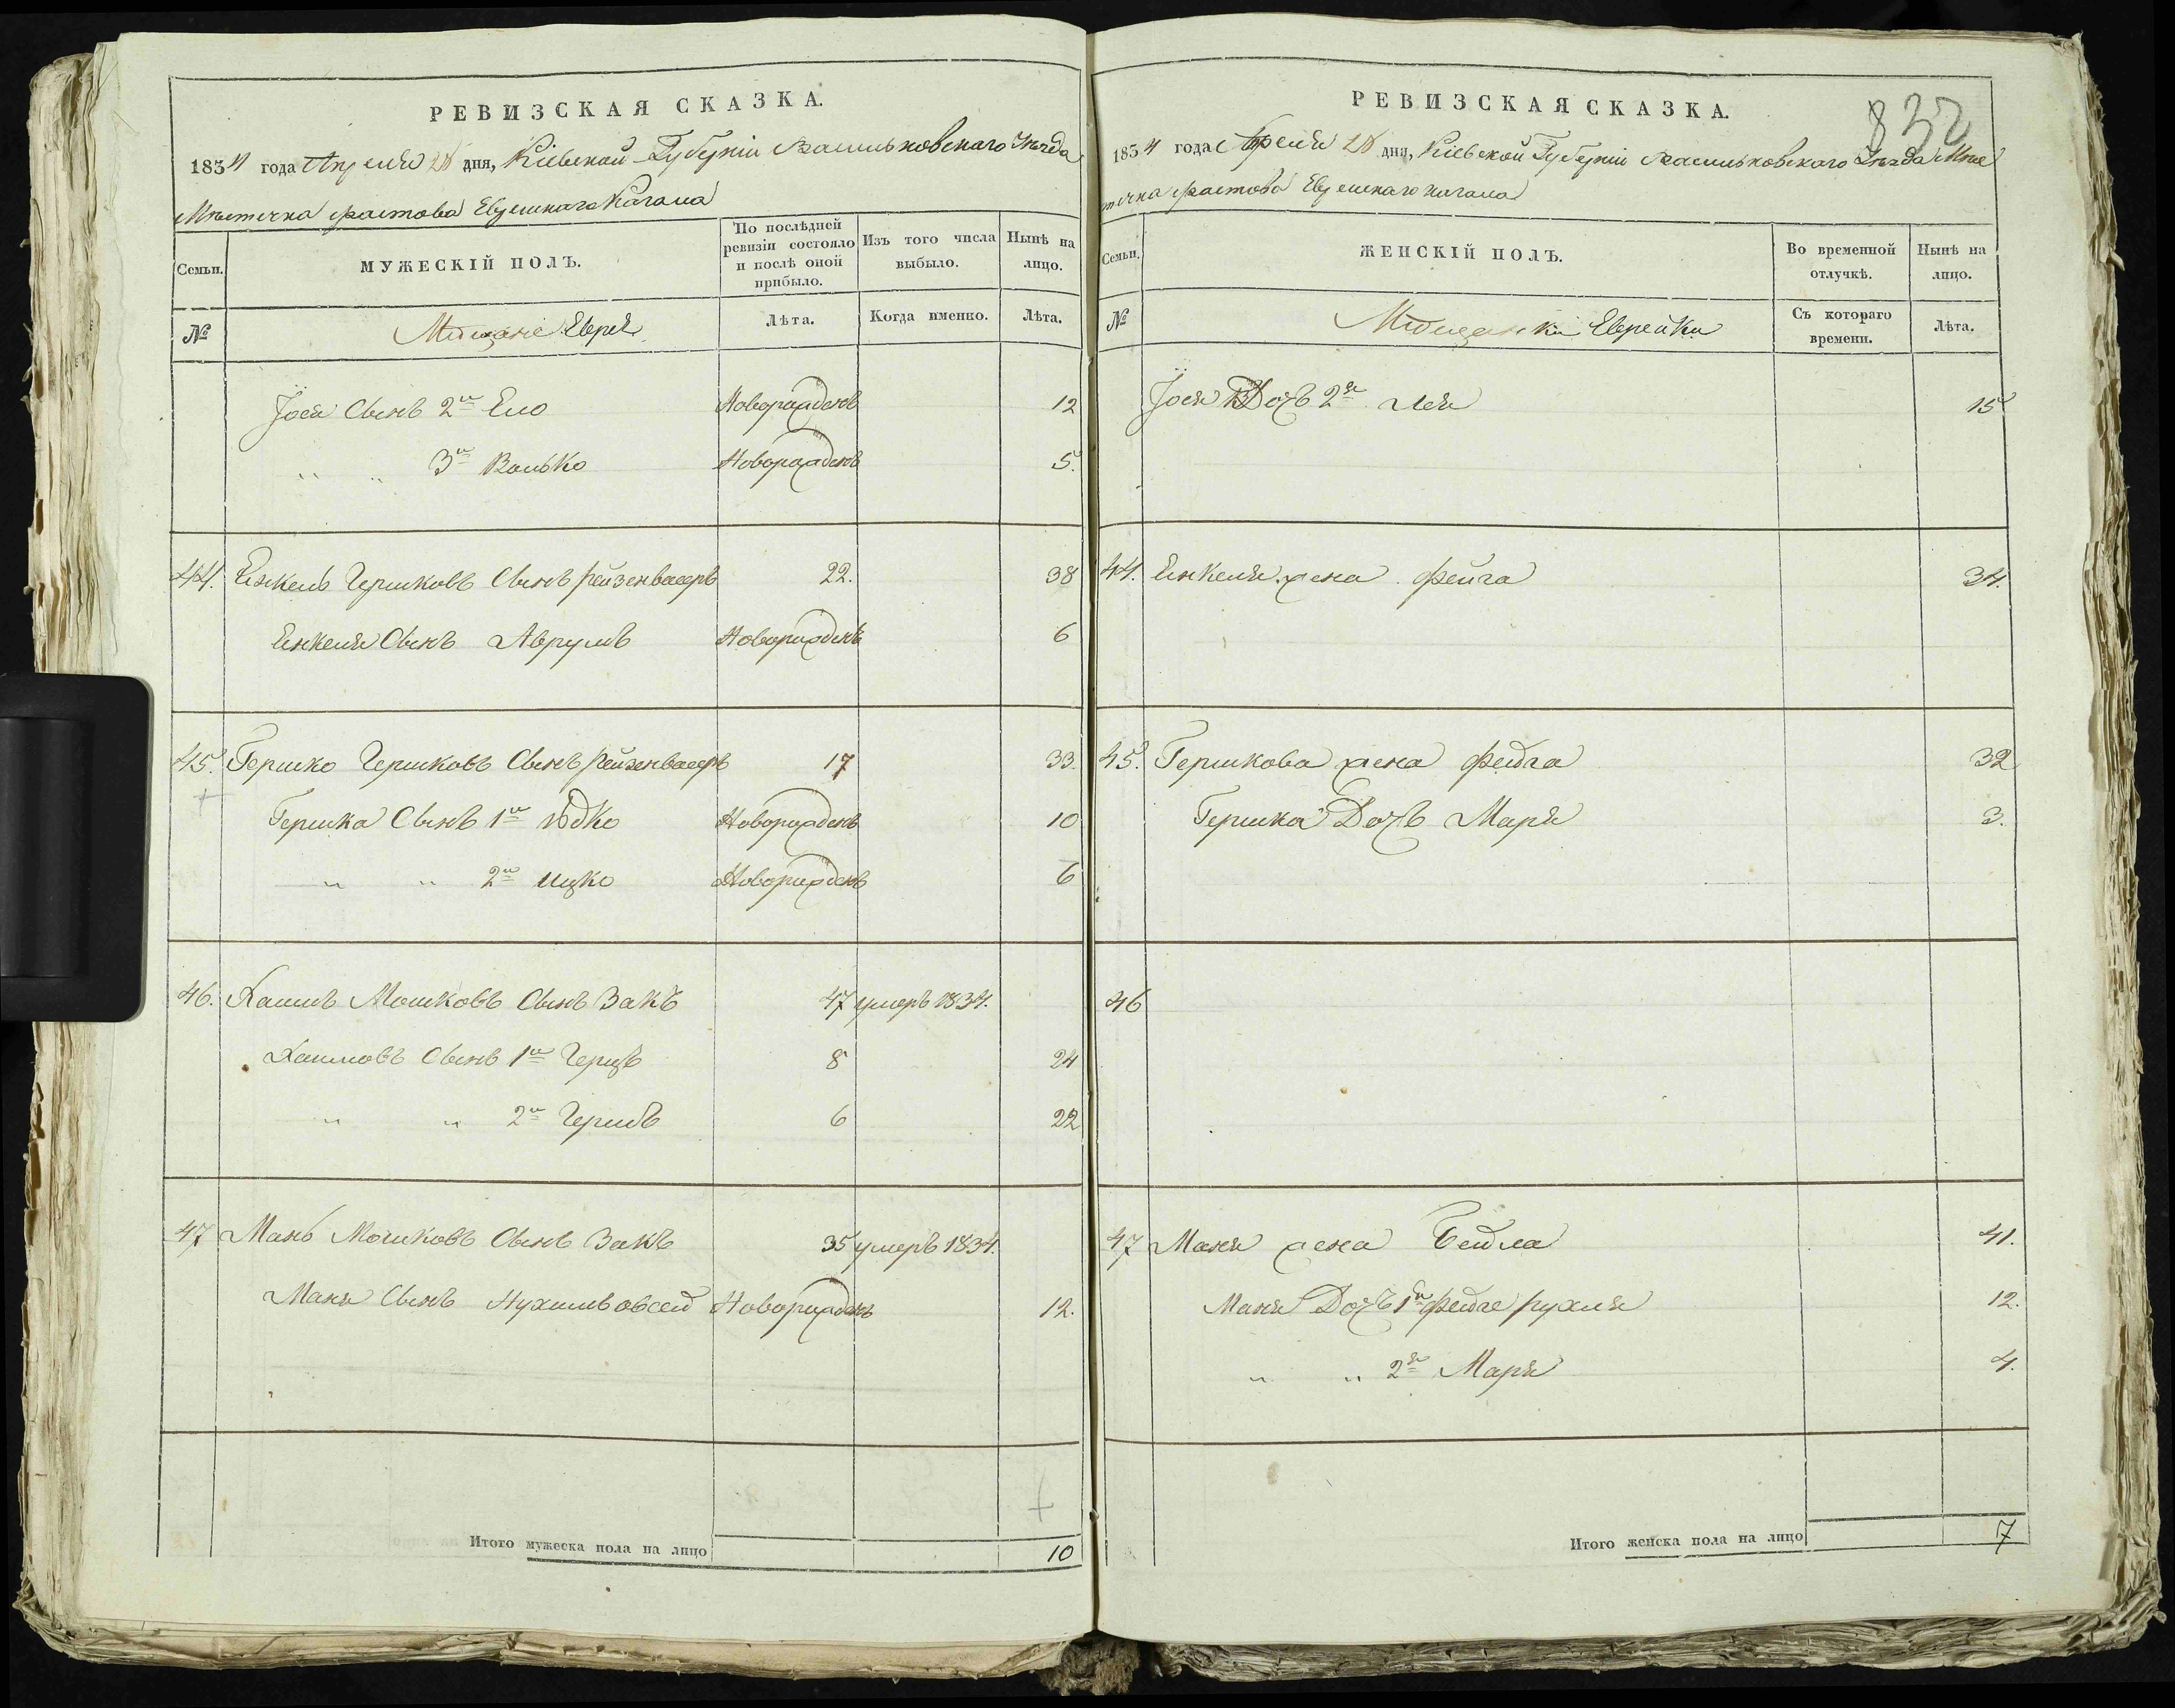 РЕВИЗСКАЯ СКАЗКА.
1834 года Апреля 28 дня, Кіевской Губерніи Васильковскаго Уезда
Местечка Фастова Еврейскаго Кагала
Семьи.
МУЖЕСКІЙ ПОЛЪ.
По послѣдней ревизіи состояло и послѣ оной прибыло.
Изъ того числа выбыло.
Нынѣ на лицо.
№
Мѣщане Евреи
Лѣта.
Когда именно.
Лѣта.
Іося Сынъ 2й Ело Новорожденъ 12
„ „ 3й Волько Новорожденъ 5.
44. Енкель Гершковъ Сынъ Рейзенвасеръ 22. 38
Енкеля Сынъ Аврумъ Новорожденъ 6
45. Гершко Гершковъ Сынъ Рейзенвасеръ 17 33.
Гершка Сынъ 1й Юдко Новорожденъ 10
„ „ 2й Ицко Новорожденъ 6
46. Хаимъ Мошковъ Сынъ Закъ 47 умеръ 1834.
Хаимовъ Сынъ 1й Герцъ 8 24
„ „ 2й Гершъ 6 22
47 Мань Мошковъ Сынъ Закъ 35 умеръ 1834.
Маня Сынъ Нухимъ Овсей Новорожденъ 12.
Итого мужеска пола на лицо 10
РЕВИЗСКАЯ СКАЗКА.
832
1834 года Апреля 28 дня, Кіевской Губерніи Васильковскаго Уезда Мес
течка Фастова Еврейскаго Кагала
Семьи.
ЖЕНСКІЙ ПОЛЪ.
Во временной отлучкѣ.
Нынѣ на лицо.
№
Мѣщанки Еврейки
Съ котораго времени.
Лѣта.
Іося Дочь 2я Лея 15
44. Енкеля жена Фейга 34.
45. Гершкова жена Фейга 32
Гершка Дочь Маря 3.
46
47 Маня жена Бейла 41.
Маня Дочь 1я Фейге Рухля 12.
„ „ 2я Маря 4.
Итого женска пола на лицо 7